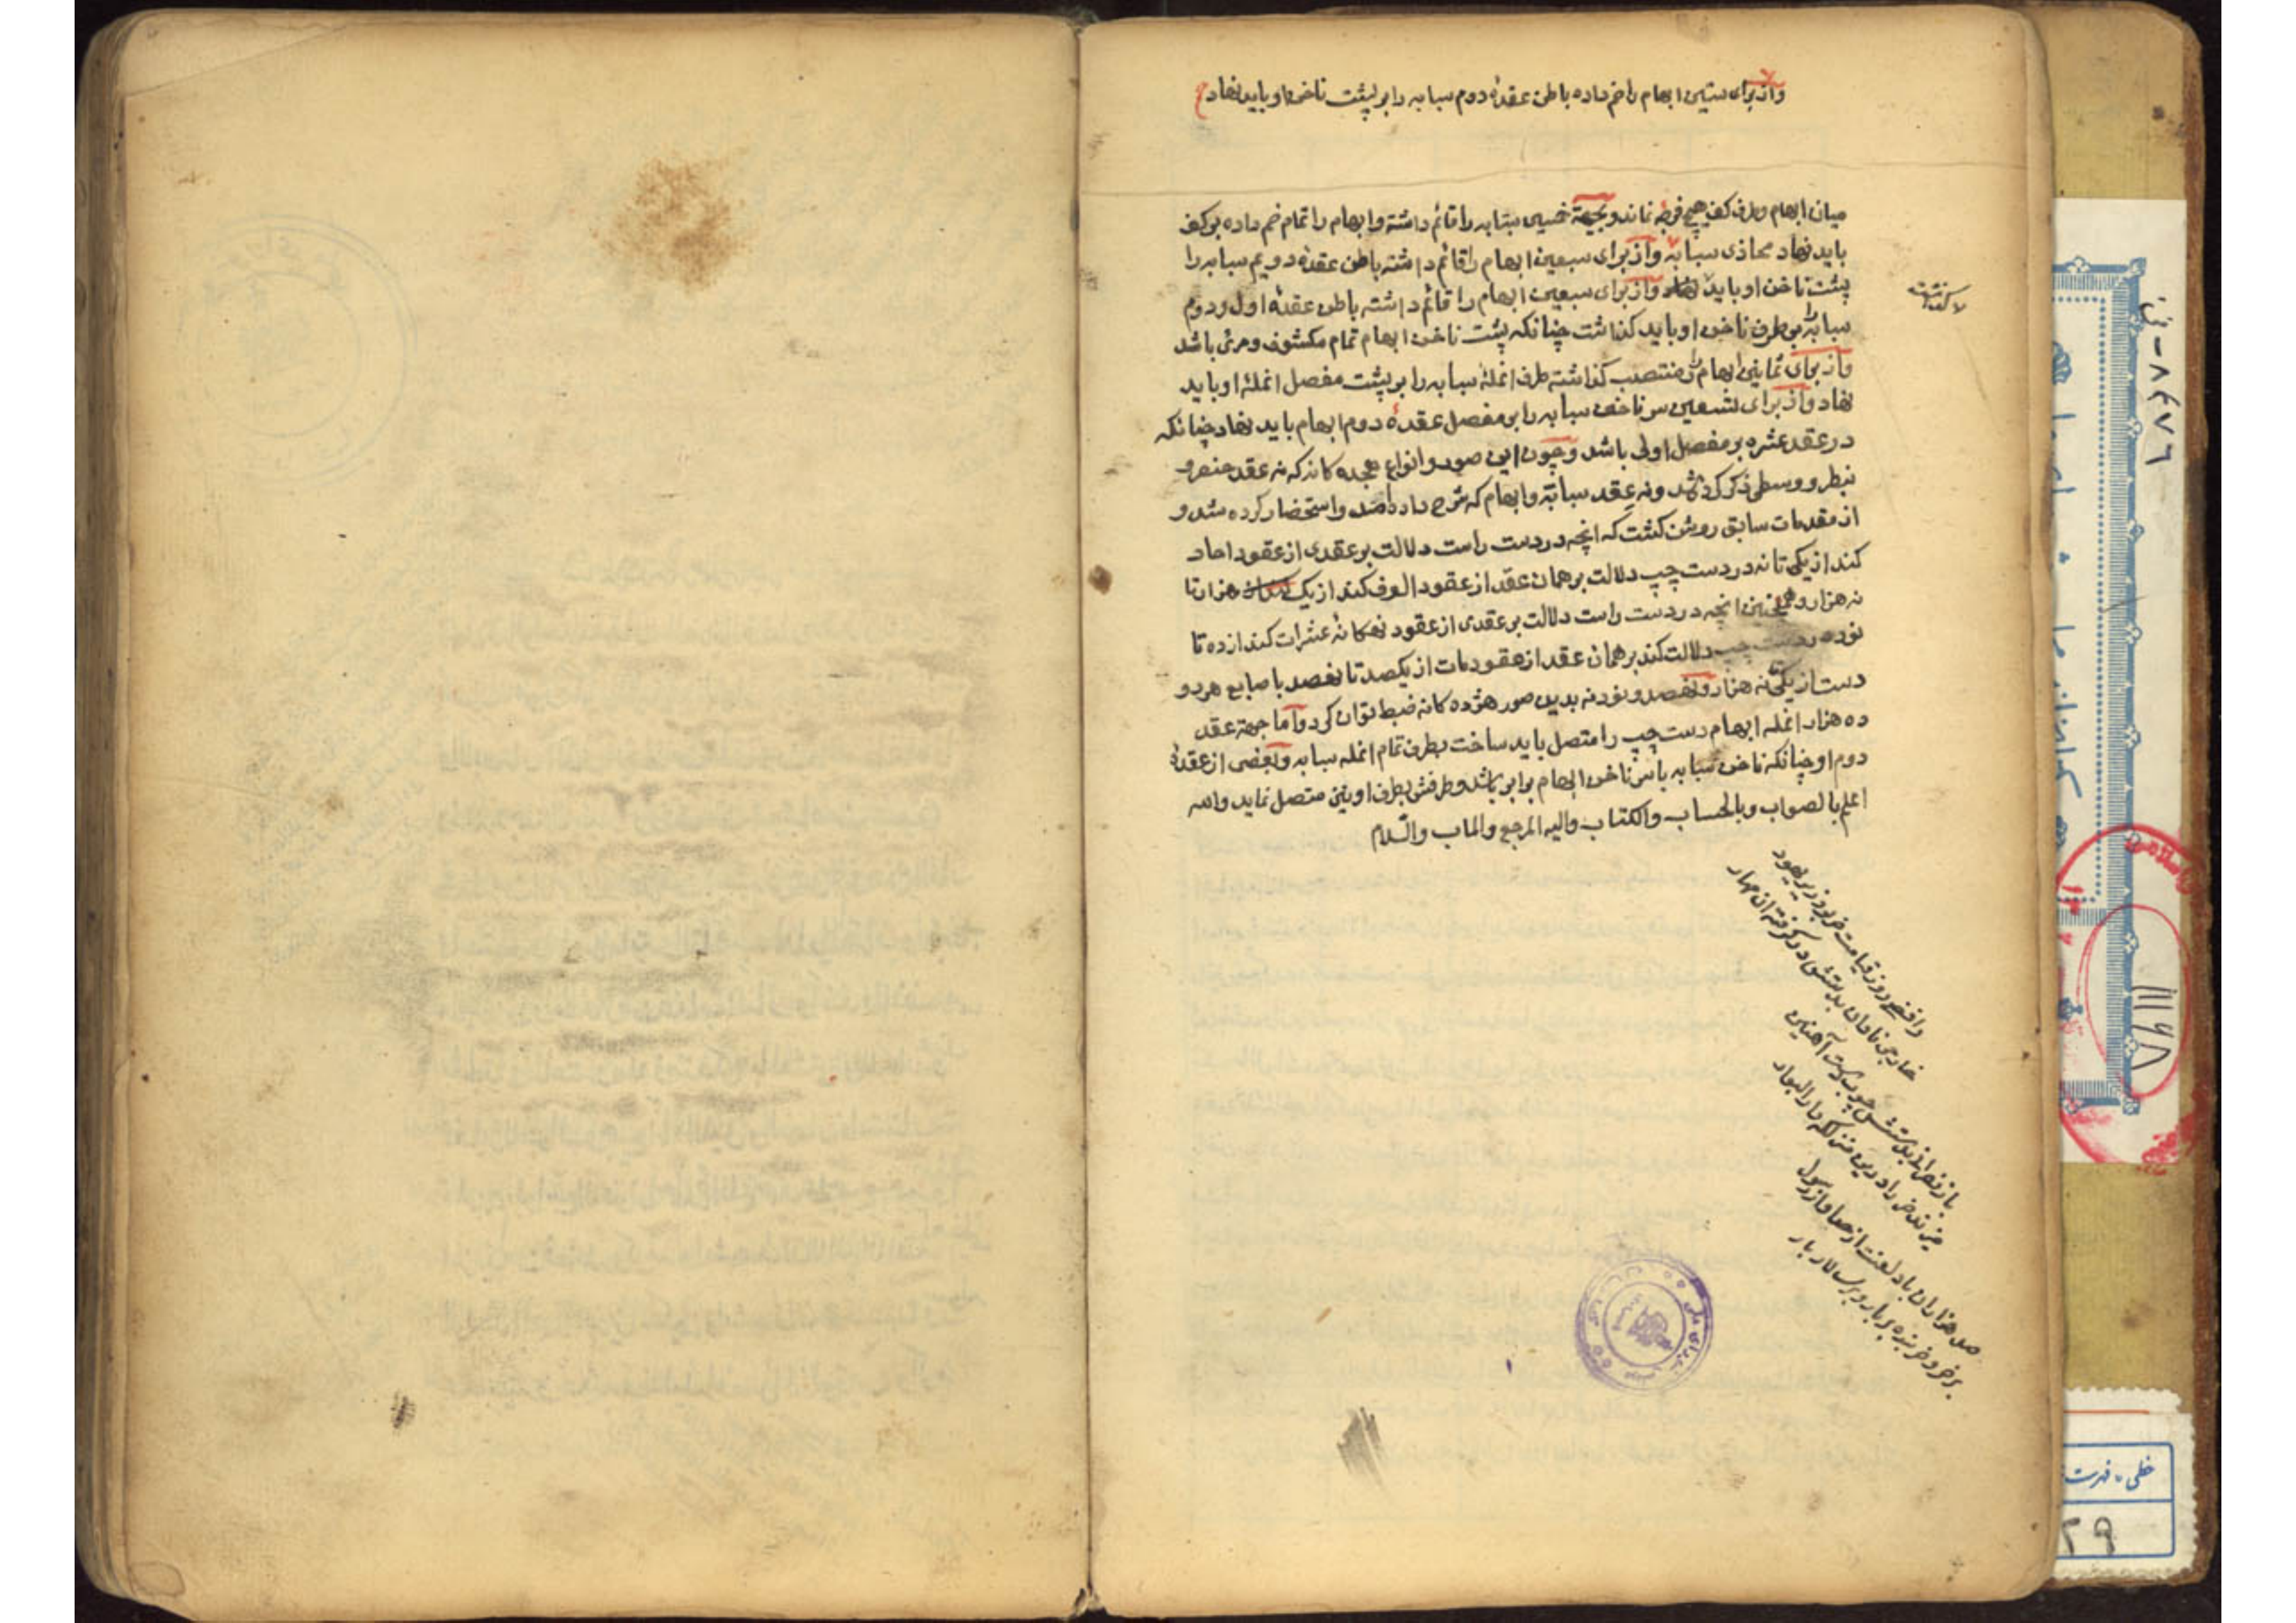 واز برای ستین ابهام را خم داده باطن عقدهٔ دوم سبابه را بر پشت ناخن او باید نهاد
میان ابهام و طرف کف هیچ فرجه نماند و بجهة خمسین سبابه را قائم داشته و ابهام را تمام خم داده بر کف
باید نهاد محاذی سبابه واز برای سبعین ابهام را قائم داشته باطن عقدهٔ دویم سبابه را
پشت ناخن او باید نهاد واز برای سبعین ابهام را قائم داشته باطن عقدهٔ اول و دوم
سبابه را بر طرف ناخن او باید گذاشت چنانکه پشت ناخن ابهام تمام مکشوف و مرئی باشد
واز برای ثمانین ابهام را منتصب گذاشته طرف انملهٔ سبابه را بر پشت مفصل انملهٔ او باید
نهاد واز برای تسعین سر ناخن سبابه را بر مفصل عقدهٔ دوم ابهام باید نهاد چنانکه
در عقد عشره بر مفصل اولی باشد و چون این صور و انواع هجده کانه که نه عقد خنصر و
بنصر و وسطی ذکر کرده شد و نه عقد سبابه و ابهام که شرح داده آمد واستحضار کرده شد و
از مقدمات سابق روشن کشت که انچه در دست راست دلالت بر عقدی از عقود احاد
کند از یکی تا نه در دست چپ دلالت بر همان عقد از عقود الوف کند از یک هزار تا
نه هزار و همچنین انچه در دست راست دلالت بر عقدی از عقود نهکانهٔ عشرات کند از ده تا
نود در دست چپ دلالت کند بر همان عقد از عقود مات از یکصد تا نهصد با صابع هر دو
دست از یکی تا نه هزار و نهصد و نود نه بدین صور هژده کانه ضبط توان کرد و اما جهة عقد
ده هزار انمله ابهام دست چپ را متصل باید ساخت بطرف تمام انمله سبابه و بعضی از عقدهٔ
دوم او چنانکه ناخن سبابه باسر ناخن ابهام برابر باشد و طرفش بطرف او نیز متصل نماید والله
اعلم بالصواب و بالحساب والکتاب والیه المرجع والماب والسّلام
رافضی روز قیامت خر بود زیر یهود
خارجی نادان بدستش در گرفته ان مهار
باز نصرانی بدستش چوب دست آهنین
صد هزاران باد لعنت از خدا و از رسول
بر خر و خر بنده و بر بار و بر سالار بار
خطی - فهرست